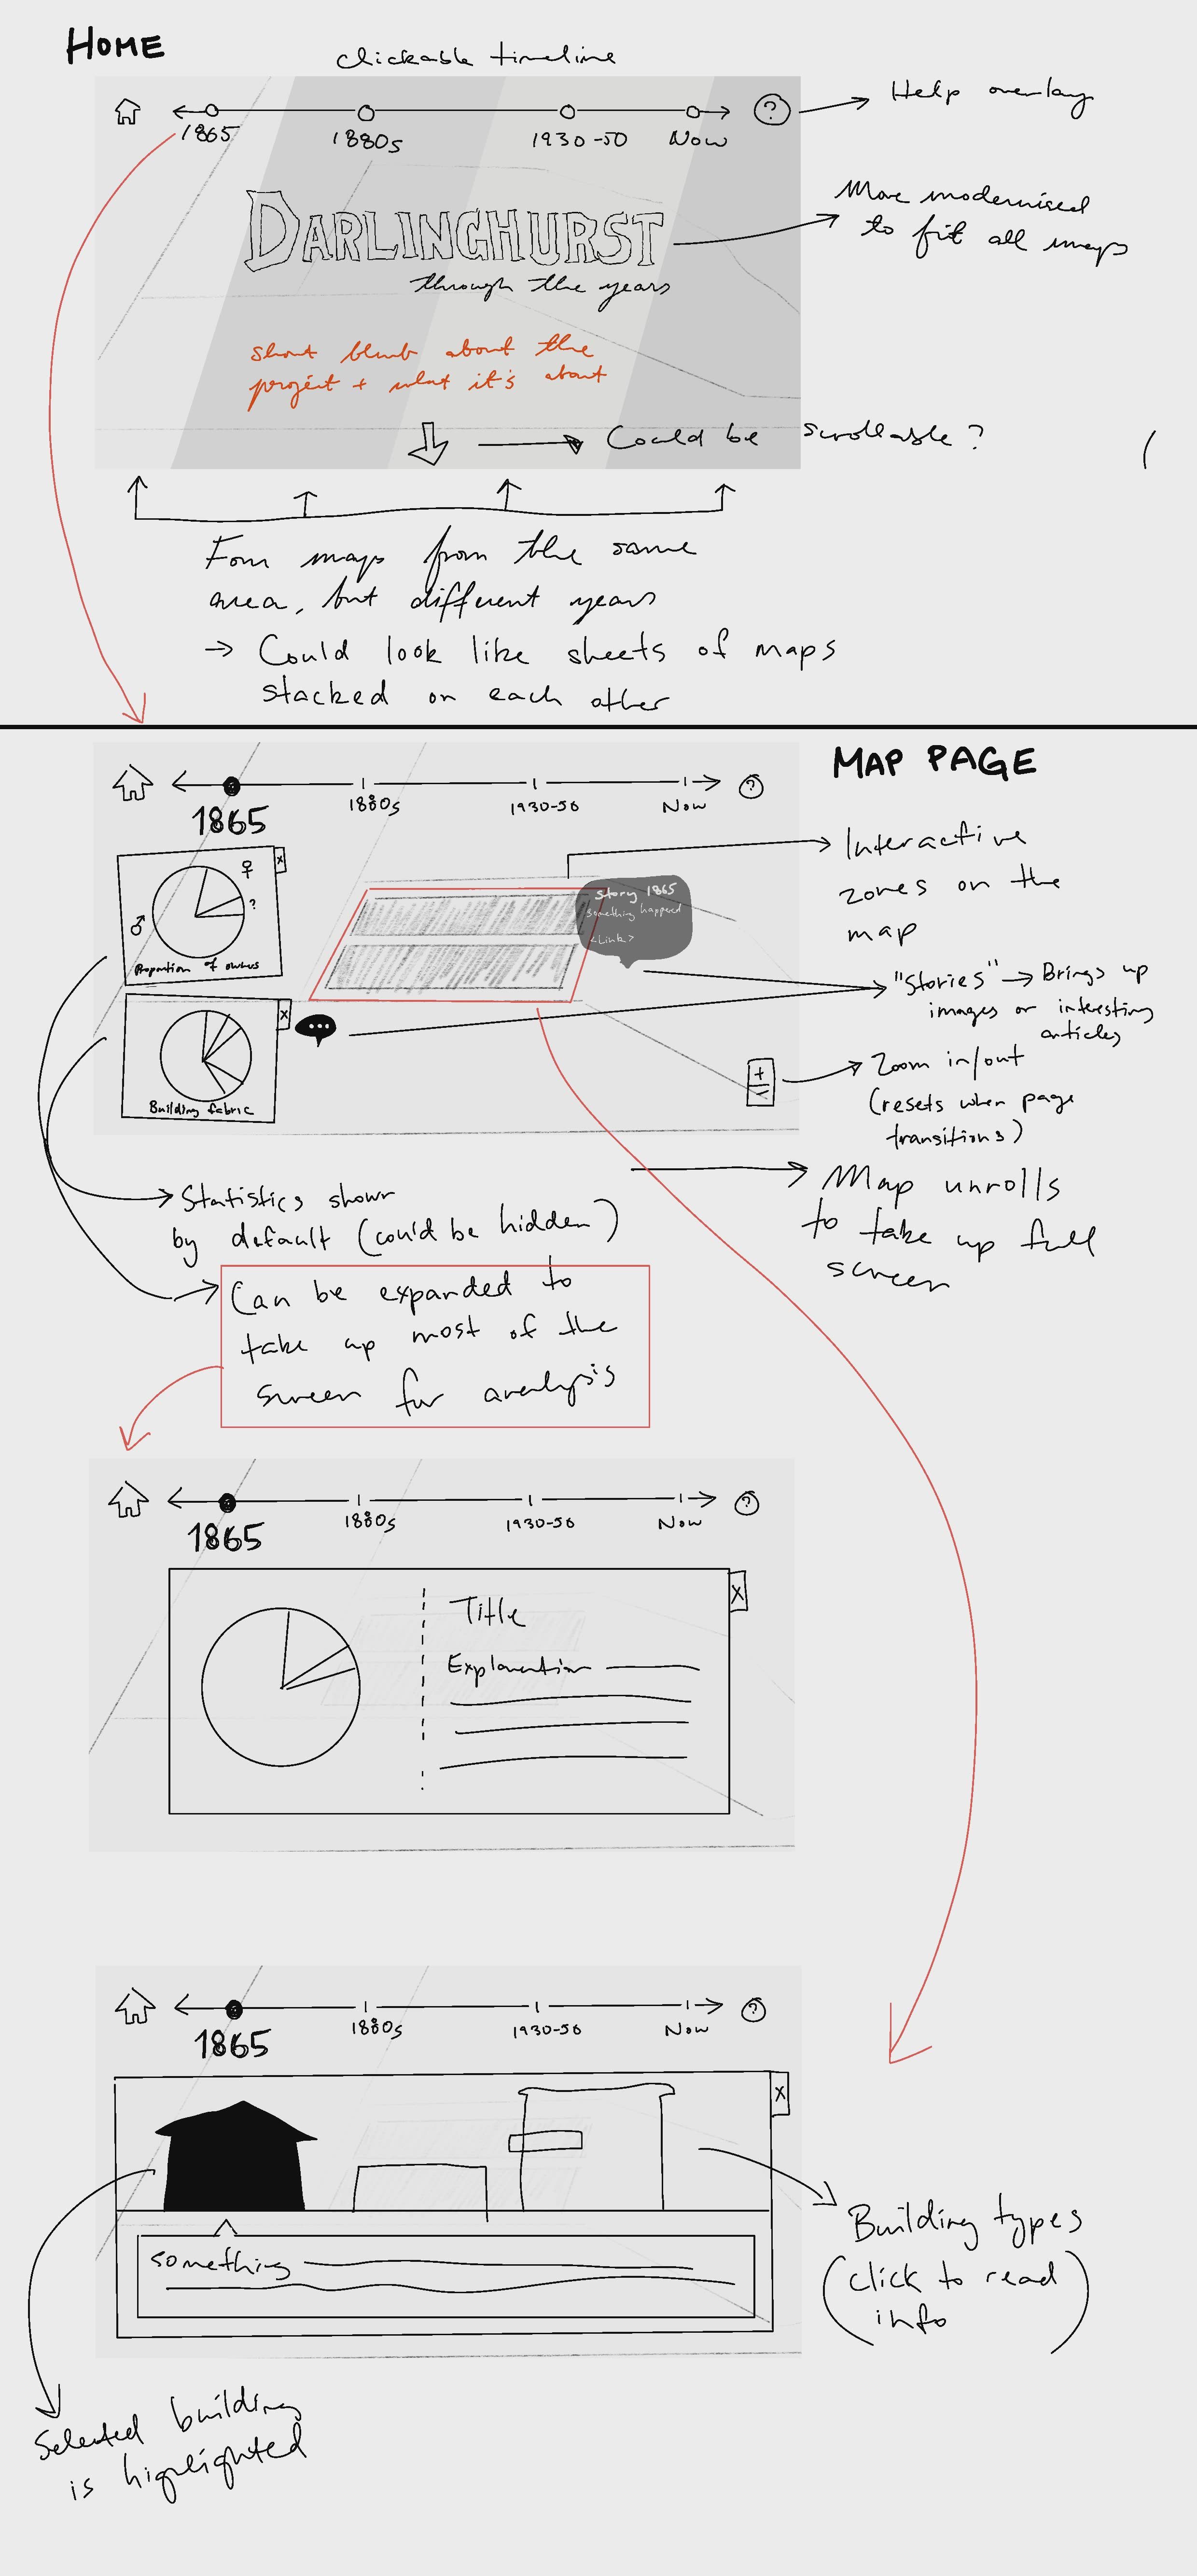 HOME
clickable timeline
1865
1880s
1930-50
Now
?
Help overlay
DARLINGHURST
through the years
More modernised
to fit all maps
short blurb about the
project + what it's about
Could be scrollable?
Four maps from the same
area, but different years
→ Could look like sheets of maps
stacked on each other
MAP PAGE
1865
1880s
1930-50
Now
?
♀
?
♂
x
Proportion of owners
x
Building fabric
Story 1865
something happened
<Link>
...
+
-
Interactive
zones on the
map
"Stories" → Brings up
images or interesting
articles
Zoom in/out
(resets when page
transitions)
Map unrolls
to take up full
screen
Statistics shown
by default (could be hidden)
Can be expanded to
take up most of the
screen for analysis
1865
1880s
1930-50
Now
?
x
Title
Explanation
1865
1880s
1930-50
Now
?
x
something
Building types
(click to read
info)
Selected building
is highlighted